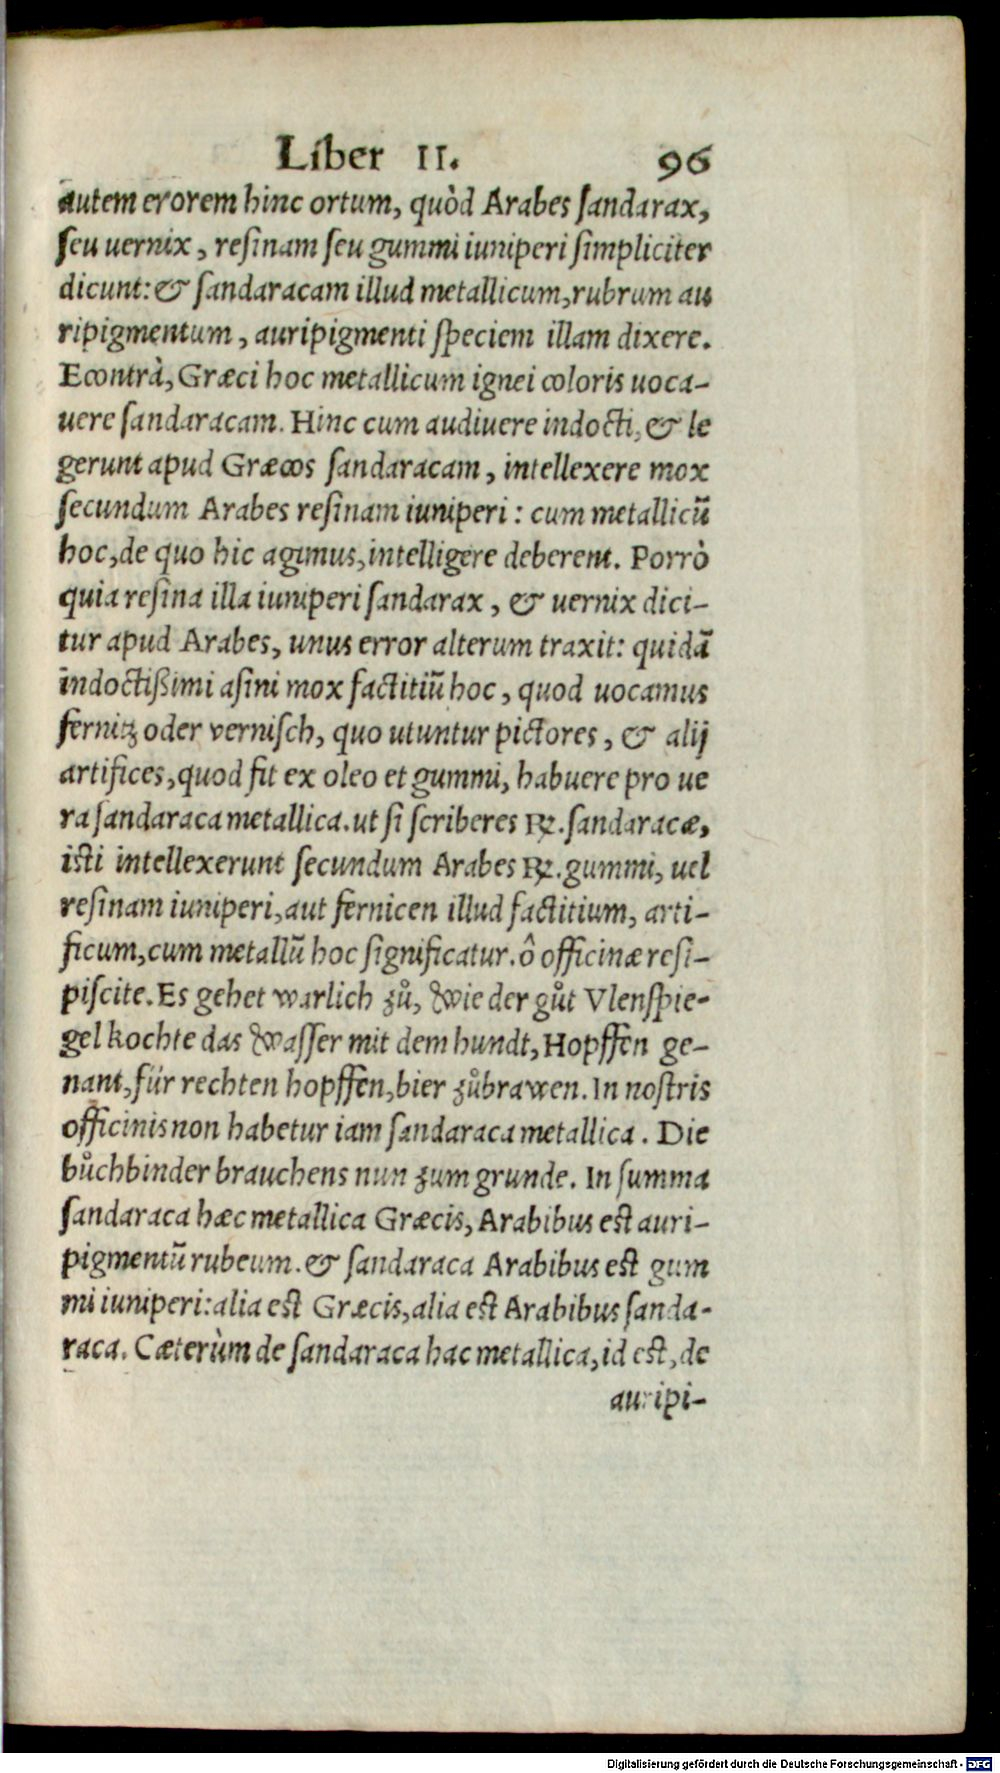 Liber II. 96
autem erorem hinc ortum, quòd Arabes sandarax,
seu uernix, resinam seu gummi iuniperi simpliciter
dicunt: & sandaracam illud metallicum, rubrum au
ripigmentum, auripigmenti speciem illam dixere.
Econtrà, Græci hoc metallicum ignei coloris uoca-
uere sandaracam. Hinc cum audiuere indocti, & le
gerunt apud Græcos sandaracam, intellexere mox
secundum Arabes resinam iuniperi: cum metallicũ
hoc, de quo hic agimus, intelligere deberent. Porrò
quia resina illa iuniperi sandarax, & uernix dici-
tur apud Arabes, unus error alterum traxit: quidã
indoctißimi asini mox factitiũ hoc, quod uocamus
fernitz oder vernisch, quo utuntur pictores, & alij
artifices, quod fit ex oleo et gummi, habuere pro ue
ra sandaraca metallica. ut si scriberes ℞. sandaracæ,
isti intellexerunt secundum Arabes ℞. gummi, uel
resinam iuniperi, aut fernicen illud factitium, arti-
ficum, cum metallũ hoc significatur. ô officinæ resi-
piscite. Es gehet warlich zů, wie der gůt Vlenspie-
gel kochte das wasser mit dem hundt, Hopffen ge-
nant, für rechten hopffen, bier zůbrawen. In nostris
officinis non habetur iam sandaraca metallica. Die
bůchbinder brauchens nun zum grunde. In summa
sandaraca hæc metallica Græcis, Arabibus est auri-
pigmentũ rubeum. & sandaraca Arabibus est gum
mi iuniperi: alia est Græcis, alia est Arabibus sanda-
raca. Cæterùm de sandaraca hac metallica, id est, de
auripi-
Digitalisierung gefördert durch die Deutsche Forschungsgemeinschaft - DFG